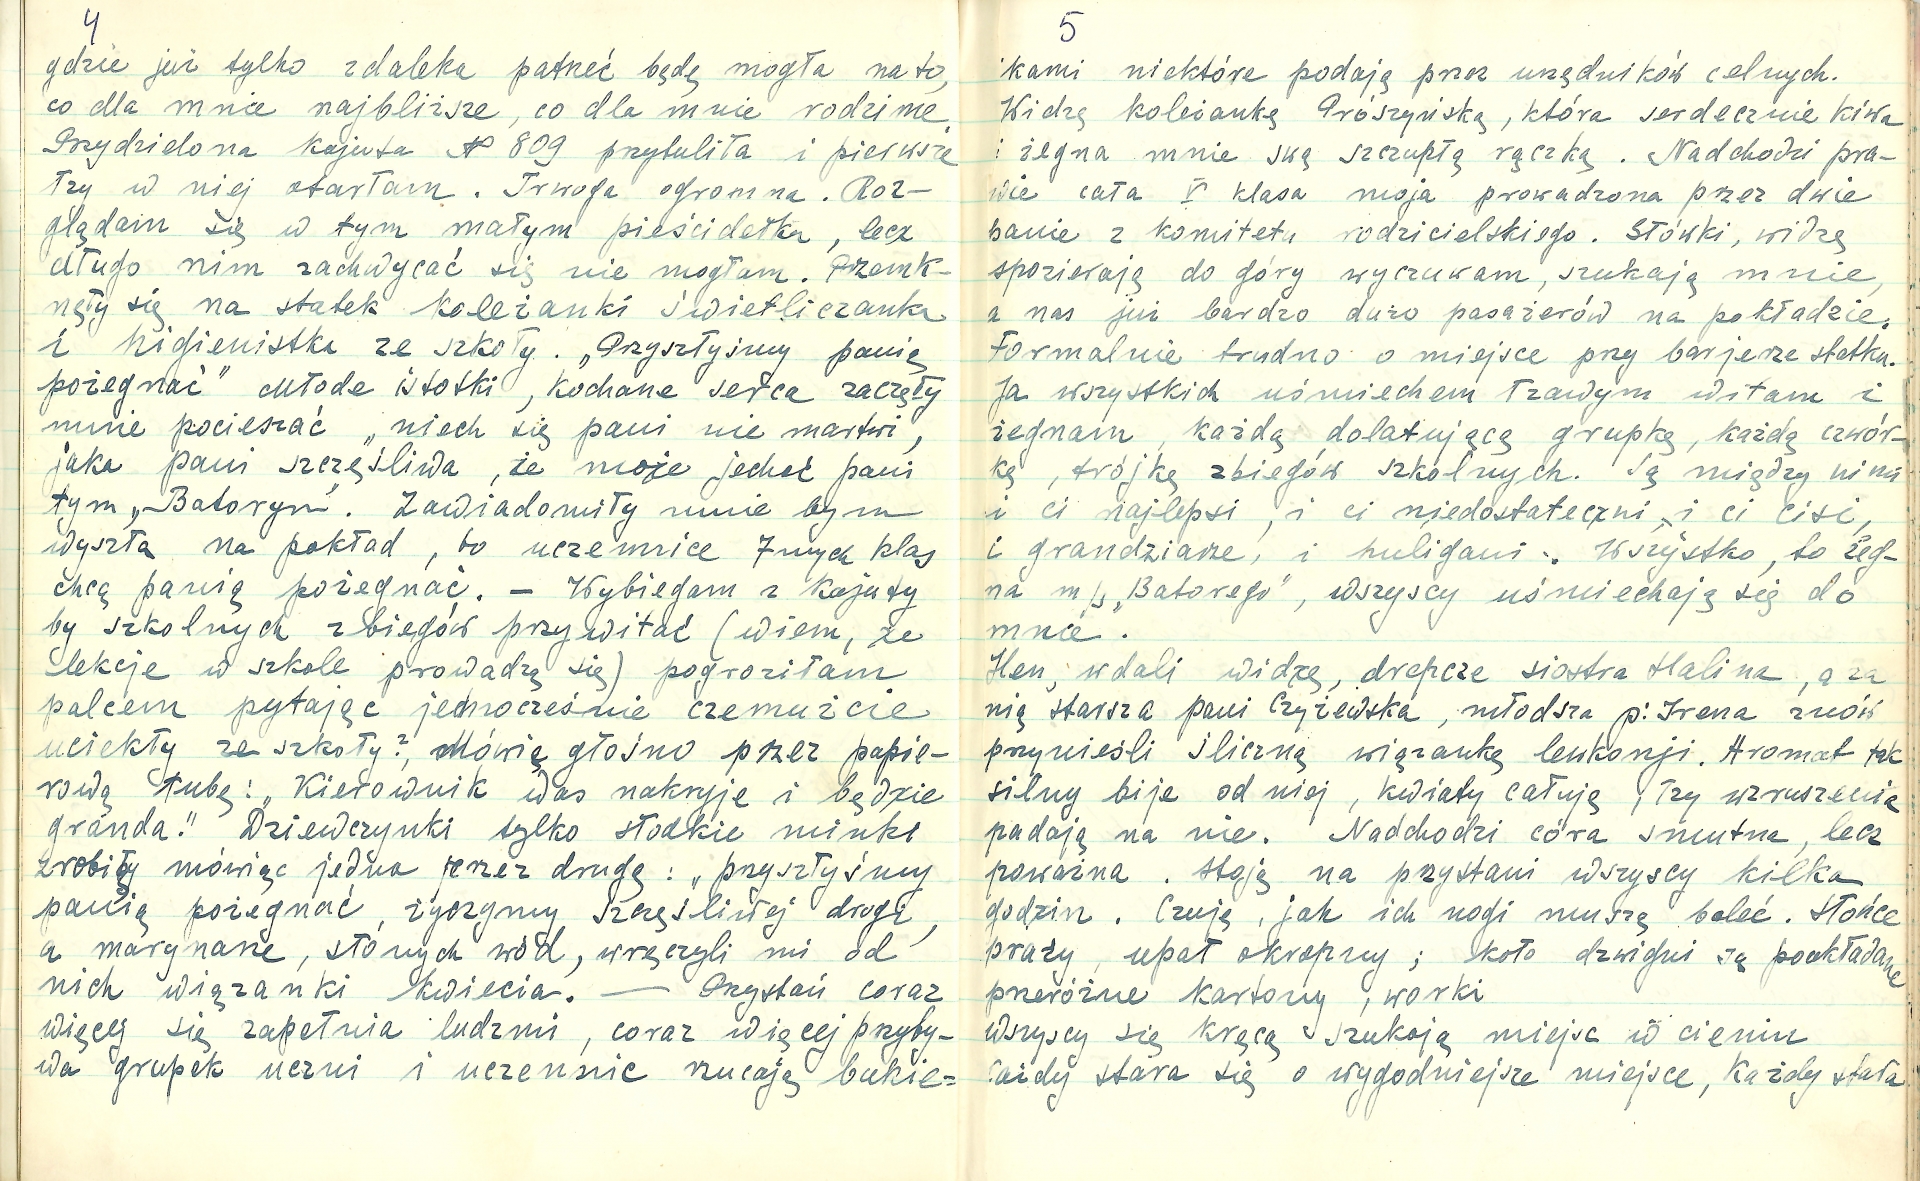 4
gdzie już tylko zdaleka patrzeć będę mogła na to,
co dla mnie najbliższe, co dla mnie rodzime.
Przydzielona kajuta № 809 przytuliła i pierwsze
łzy w niej otarłam. Trwoga ogromna. Roz-
glądam się w tym małym pieścidełku, lecz
długo nim zachwycać się nie mogłam. Przemk-
nęły się na statek koleżanki świetliczanka
i higienistka ze szkoły. „Przyszłyśmy panią
pożegnać" Młode istotki, kochane serca zaczęły
mnie pocieszać „niech się pani nie martwi,
jaka pani szczęśliwa, że może jechać pani
tym „Batorym". Zawiadomiły mnie bym
wyszła na pokład, bo uczennice 7mych klas
chcą panią pożegnać. – Wybiegam z kajuty
by szkolnych zbiegów przywitać (wiem, że
lekcje w szkole prowadzą się) pogroziłam
palcem pytając jednocześnie czemużcie
uciekły ze szkoły?, Mówię głośno przez papie-
rową tubę: „Kierownik was nakryje i będzie
granda." Dziewczynki tylko słodkie minki
zrobiły mówiąc jedna przez drugą: „przyszłyśmy
panią pożegnać, życzymy szczęśliwej drogi,
a marynarze, słonych wód, wręczyli mi od
nich wiązanki kwiecia. — Przystań coraz
więcej się zapełnia ludźmi, coraz więcej przyby-
wa grupek uczni i uczennic rzucają bukie=
5
ikami niektóre podają przez urzędników celnych.
Widzę koleżankę Prószyńską, która serdecznie kiwa
i żegna mnie swą szczupłą rączką. Nadchodzi pra-
wie cała V klasa moja prowadzona przez dwie
panie z komitetu rodzicielskiego. Stówki, widzę
spozierają do góry wyczuwam, szukają mnie,
a nas już bardzo dużo pasażerów na pokładzie.
Formalnie trudno o miejsce przy barjerze statku.
Ja wszystkich uśmiechem łzawym witam i
żegnam, każdą dolatującą grupkę, każdą czwór-
kę, trójkę zbiegów szkolnych. Są między nimi
i ci najlepsi, i ci niedostateczni, i ci cisi,
i grandziarze, i huligani. Wszystko, to żeg-
na m/s „Batorego", wszyscy uśmiechają się do
mnie.
Hen, wdali widzę, drepcze siostra Halina, a za
nią starsza pani Czyżewska, młodsza p. Irena znów
przynieśli śliczną wiązankę lewkonji. Aromat tak
silny bije od niej, kwiaty całuję, łzy wzruszenia
padają na nie. Nadchodzi córa smutna, lecz
poważna. Stoją na przystani wszyscy kilka
godzin. Czuję, jak ich nogi muszą boleć. Słońce
praży, upał okropny; koło dzwigni są poukładane
przeróżne kartony, worki
wszyscy się kręcą szukają miejsc w cieniu
Każdy stara się o wygodniejsze miejsce, każdy stara